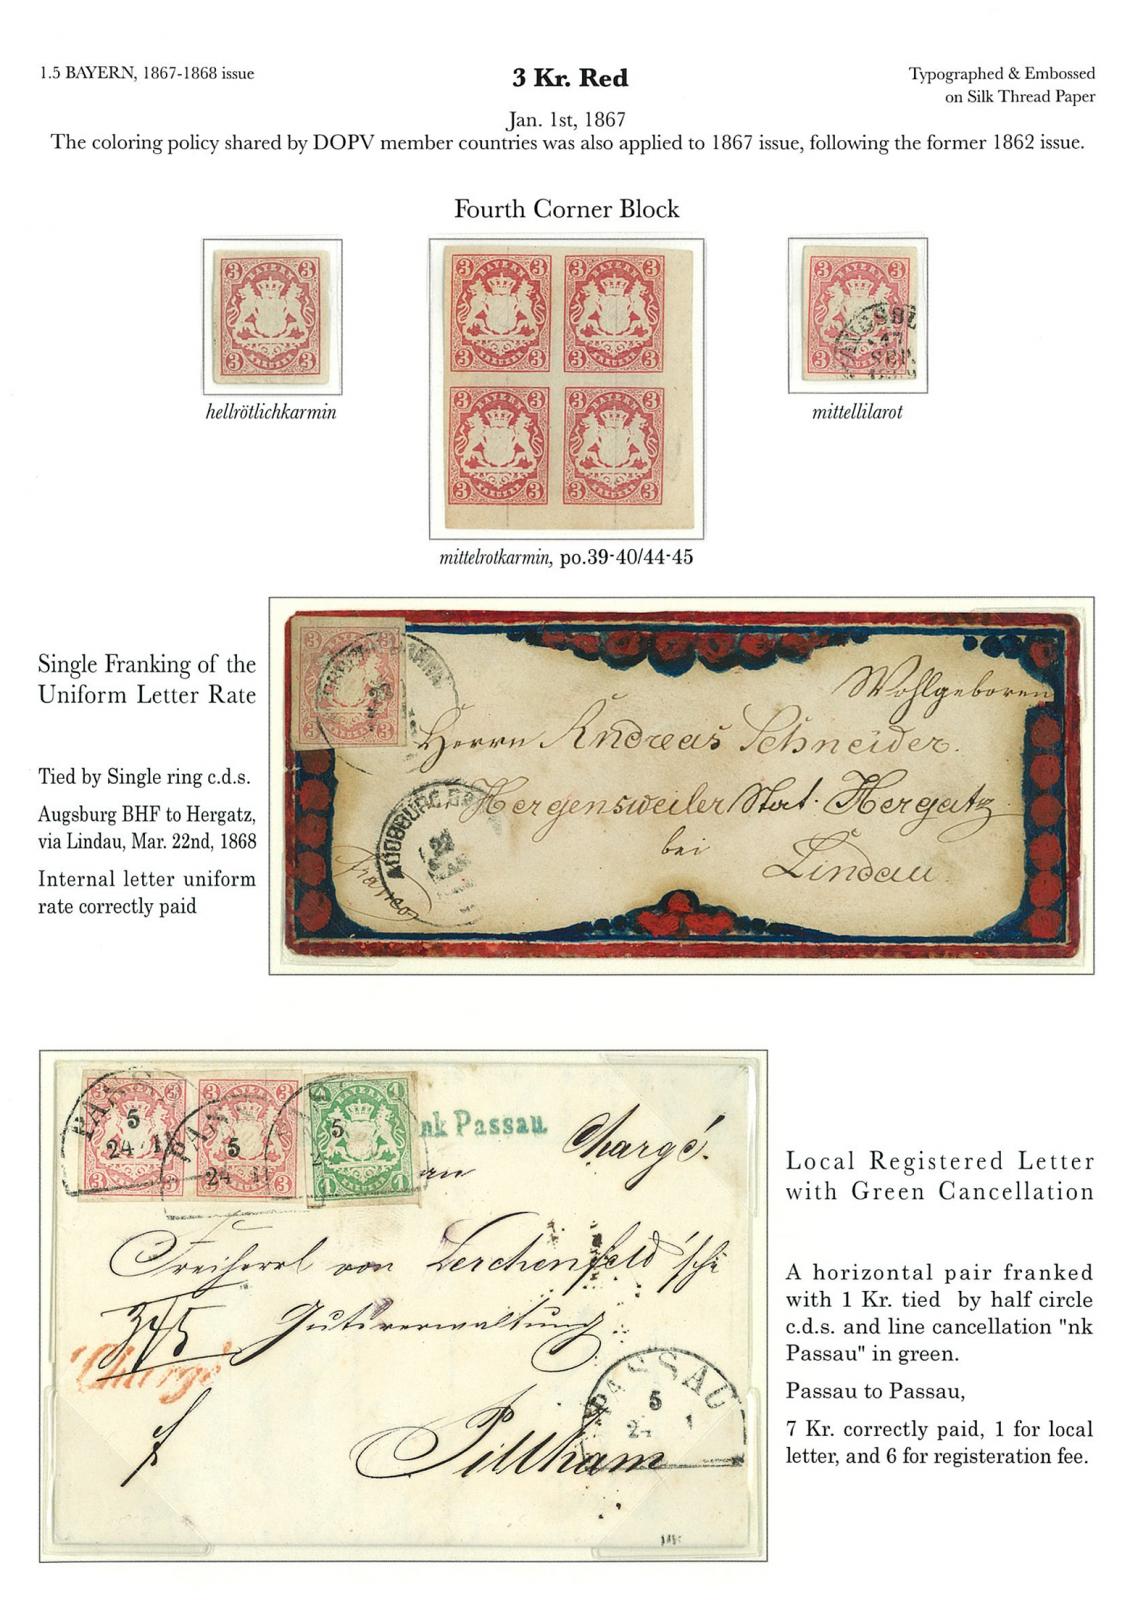 1.5 BAYERN, 1867-1868 issue
3 Kr. Red
Typographed & Embossed
on Silk Thread Paper
Jan. 1st, 1867
The coloring policy shared by DOPV member countries was also applied to 1867 issue, following the former 1862 issue.
Fourth Corner Block
3 BAYERN 3
3 KREUZER 3
hellrötlichkarmin
3 BAYERN 3 3 BAYERN 3
3 KREUZER 3 3 KREUZER 3
3 BAYERN 3 3 BAYERN 3
3 KREUZER 3 3 KREUZER 3
mittelrotkarmin, po.39-40/44-45
3 BAYERN 3
17
SEP.
mittellilarot
Single Franking of the
Uniform Letter Rate
Tied by Single ring c.d.s.
Augsburg BHF to Hergatz,
via Lindau, Mar. 22nd, 1868
Internal letter uniform
rate correctly paid
3 BAYERN 3
Wohlgeboren
Herrn Andreas Schneider.
Hergensweiler Stat. Hergatz
bei
Lindau
AUGSBURG
22
Franco
3 BAYERN 3 3 BAYERN 3 1 BAYERN 1
5
24
5
24
5
nk Passau
Chargé.
an
Freiherrl von Lerchenfeld'sche
Gutsverwaltung
Chargé
PASSAU
5
24 1
Pillham
Local Registered Letter
with Green Cancellation
A horizontal pair franked
with 1 Kr. tied by half circle
c.d.s. and line cancellation "nk
Passau" in green.
Passau to Passau,
7 Kr. correctly paid, 1 for local
letter, and 6 for registeration fee.